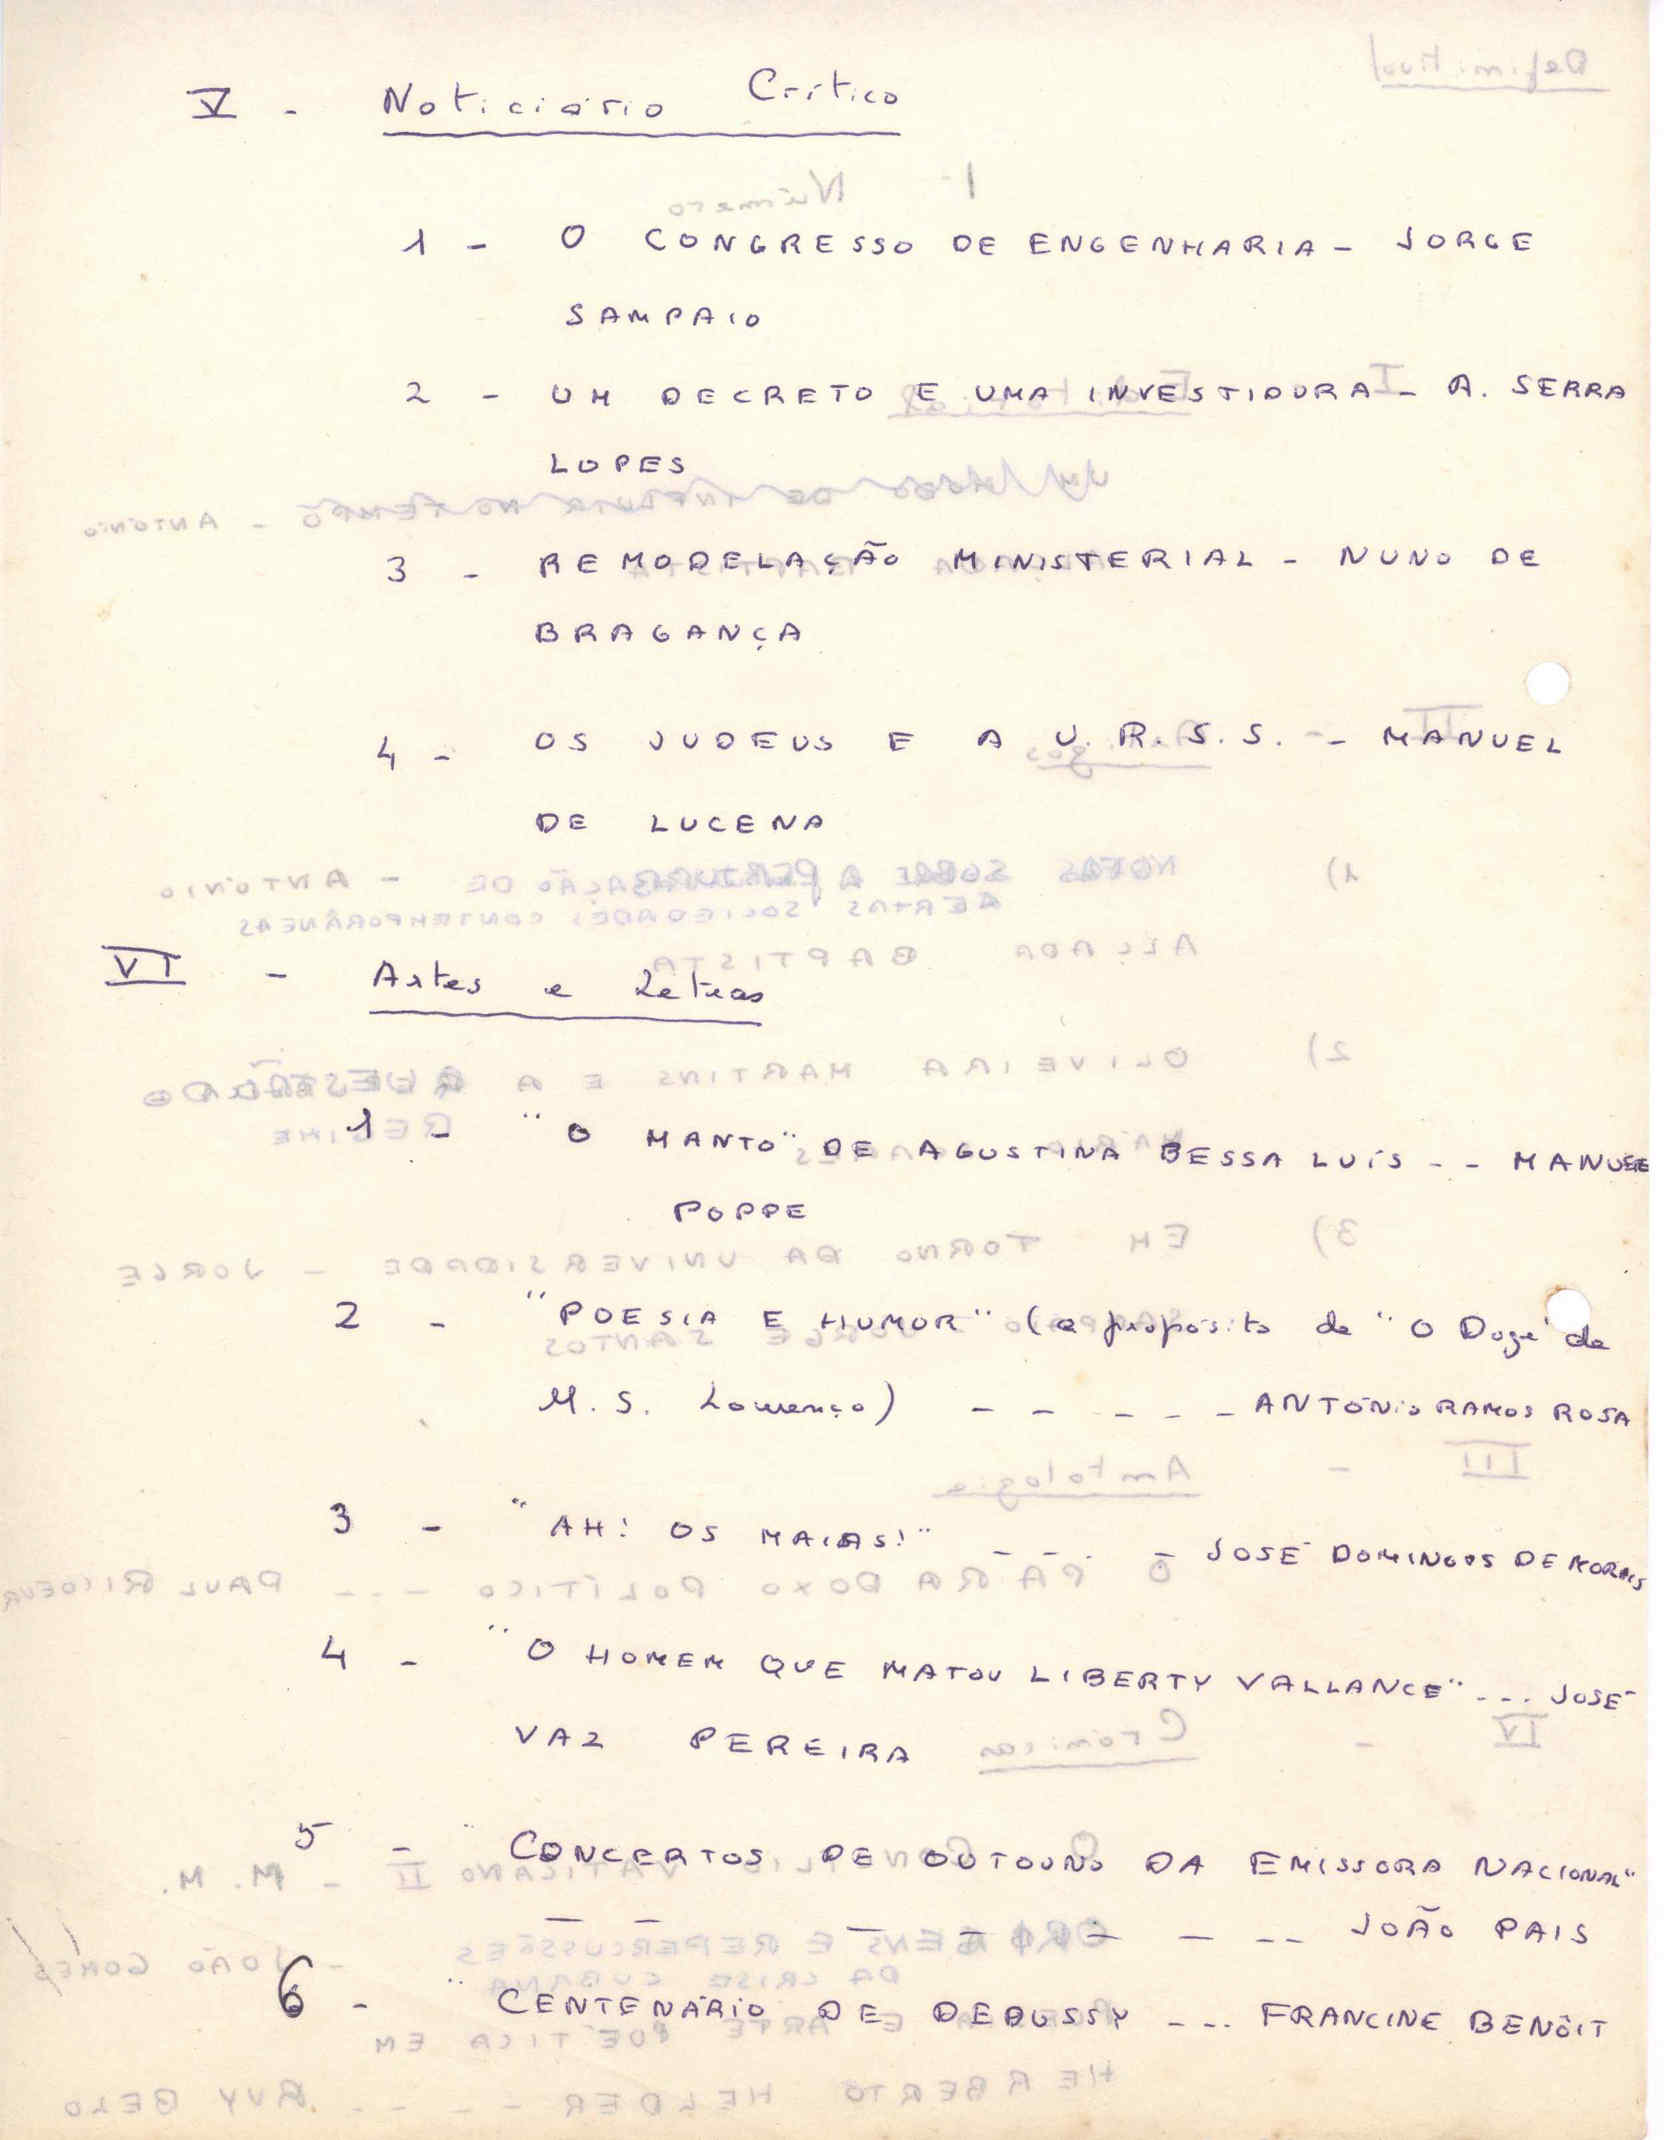 V - Noticiário Crítico
1 - O CONGRESSO DE ENGENHARIA - JORGE
SAMPAIO
2 - UM DECRETO E UMA INVESTIDURA - A. SERRA
LOPES
3 - REMODELAÇÃO MINISTERIAL - NUNO DE
BRAGANÇA
4 - OS JUDEUS E A U.R.S.S. - MANUEL
DE LUCENA
VI - Artes e Letras
1 - "O MANTO" DE AGUSTINA BESSA LUÍS - - MANUEL
POPPE
2 - "POESIA E HUMOR" (a propósito de "O Doge" de
M. S. Lourenço) - - - - - ANTÓNIO RAMOS ROSA
3 - "AH! OS MAIAS!" - - - - JOSÉ DOMINGOS DE MORAIS
4 - "O HOMEM QUE MATOU LIBERTY VALLANCE" - - - JOSÉ
VAZ PEREIRA
5 - "CONCERTOS DE OUTOUNO DA EMISSORA NACIONAL"
- - - - - - - - JOÃO PAIS
6 - "CENTENÁRIO DE DEBUSSY - - - FRANCINE BENÔIT